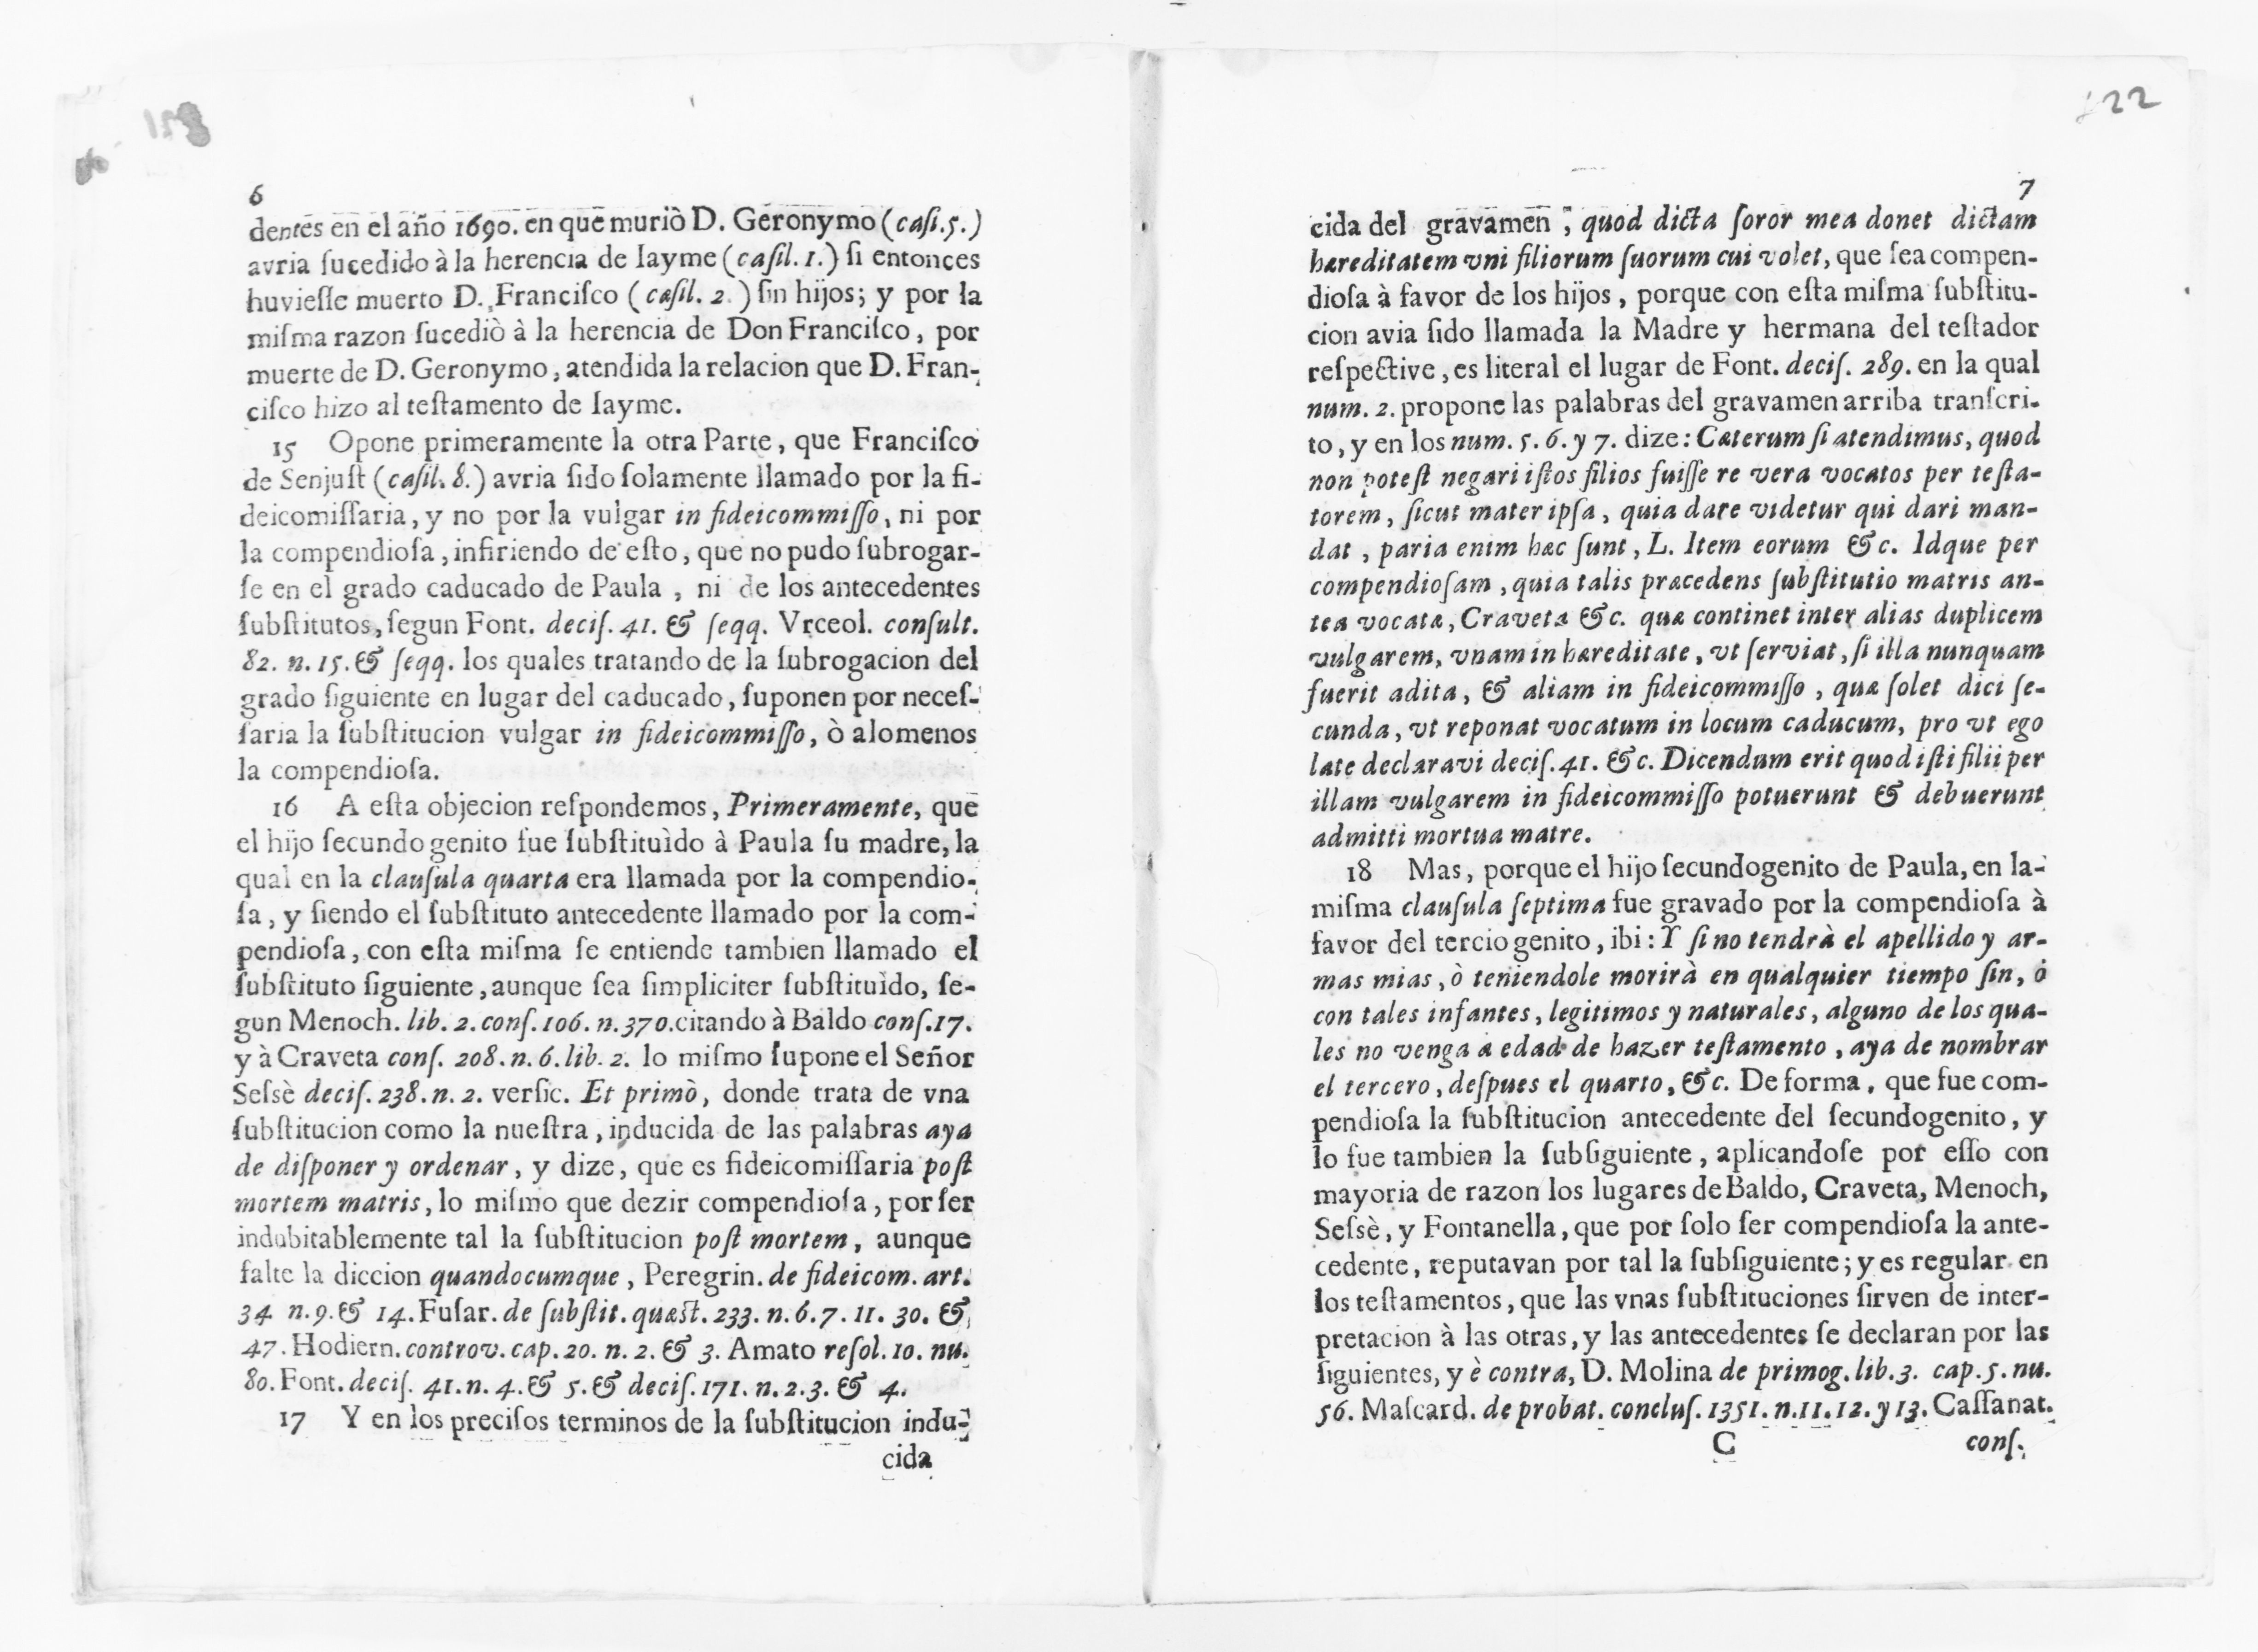 6
dentes en el año 1690. en que muriò D. Geronymo (caſi.5.)
avria ſucedido à la herencia de Iayme (caſil. 1.) ſi entonces
huvieſſe muerto D. Franciſco (caſil. 2.) ſin hijos; y por la
miſma razon ſucediò à la herencia de Don Franciſco, por
muerte de D. Geronymo, atendida la relacion que D. Fran-
ciſco hizo al teſtamento de Iayme.
15 Opone primeramente la otra Parte, que Franciſco
de Senjuſt (caſil. 8.) avria ſido ſolamente llamado por la fi-
deicomiſſaria, y no por la vulgar in fideicommiſſo, ni por
la compendioſa, infiriendo de eſto, que no pudo ſubrogar-
ſe en el grado caducado de Paula, ni de los antecedentes
ſubſtitutos, ſegun Font. deciſ. 41. & ſeqq. Vrceol. conſult.
82. n. 15. & ſeqq. los quales tratando de la ſubrogacion del
grado ſiguiente en lugar del caducado, ſuponen por neceſ-
ſaria la ſubſtitucion vulgar in fideicommiſſo, ò alomenos
la compendioſa.
16 A eſta objecion reſpondemos, Primeramente, que
el hijo ſecundo genito fue ſubſtituìdo à Paula ſu madre, la
qual en la clauſula quarta era llamada por la compendio-
ſa, y ſiendo el ſubſtituto antecedente llamado por la com-
pendioſa, con eſta miſma ſe entiende tambien llamado el
ſubſtituto ſiguiente, aunque ſea ſimpliciter ſubſtituìdo, ſe-
gun Menoch. lib. 2. conſ. 106. n. 370. citando à Baldo conſ. 17.
y à Craveta conſ. 208. n. 6. lib. 2. lo miſmo ſupone el Señor
Seſsè deciſ. 238. n. 2. verſic. Et primò, donde trata de vna
ſubſtitucion como la nueſtra, inducida de las palabras aya
de diſponer y ordenar, y dize, que es fideicomiſſaria poſt
mortem matris, lo miſmo que dezir compendioſa, por ſer
indubitablemente tal la ſubſtitucion poſt mortem, aunque
falte la diccion quandocumque, Peregrin. de fideicom. art.
34 n. 9. & 14. Fuſar. de ſubſtit. quæſt. 233. n. 6. 7. 11. 30. &
47. Hodiern. controv. cap. 20. n. 2. & 3. Amato reſol. 10. nu.
80. Font. deciſ. 41. n. 4. & 5. & deciſ. 171. n. 2. 3. & 4.
17 Y en los preciſos terminos de la ſubſtitucion indu-
cida
122
7
cida del gravamen, quod dicta ſoror mea donet dictam
hæreditatem vni filiorum ſuorum cui volet, que ſea compen-
dioſa à favor de los hijos, porque con eſta miſma ſubſtitu-
cion avia ſido llamada la Madre y hermana del teſtador
reſpective, es literal el lugar de Font. deciſ. 289. en la qual
num. 2. propone las palabras del gravamen arriba tranſcri-
to, y en los num. 5. 6. y 7. dize: Cæterum ſi atendimus, quod
non poteſt negari iſtos filios fuiſſe re vera vocatos per teſta-
torem, ſicut mater ipſa, quia dare videtur qui dari man-
dat, paria enim hæc ſunt, L. Item eorum &c. Idque per
compendioſam, quia talis præcedens ſubſtitutio matris an-
tea vocatæ, Craveta &c. quæ continet inter alias duplicem
vulgarem, vnam in hæreditate, vt ſerviat, ſi illa nunquam
fuerit adita, & aliam in fideicommiſſo, quæ ſolet dici ſe-
cunda, vt reponat vocatum in locum caducum, pro vt ego
late declaravi deciſ. 41. &c. Dicendum erit quod iſti filii per
illam vulgarem in fideicommiſſo potuerunt & debuerunt
admitti mortua matre.
18 Mas, porque el hijo ſecundogenito de Paula, en la
miſma clauſula ſeptima fue gravado por la compendioſa à
favor del tercio genito, ibi: Y ſi no tendrà el apellido y ar-
mas mias, ò teniendole morirà en qualquier tiempo ſin, ò
con tales infantes, legitimos y naturales, alguno de los qua-
les no venga a edad de hazer teſtamento, aya de nombrar
el tercero, deſpues el quarto, &c. De forma, que fue com-
pendioſa la ſubſtitucion antecedente del ſecundogenito, y
lo fue tambien la ſubſiguiente, aplicandoſe por eſſo con
mayoria de razon los lugares de Baldo, Craveta, Menoch,
Seſsè, y Fontanella, que por ſolo ſer compendioſa la ante-
cedente, reputavan por tal la ſubſiguiente; y es regular en
los teſtamentos, que las vnas ſubſtituciones ſirven de inter-
pretacion à las otras, y las antecedentes ſe declaran por las
ſiguientes, y è contra, D. Molina de primog. lib. 3. cap. 5. nu.
56. Maſcard. de probat. concluſ. 1351. n. 11. 12. y 13. Caſſanat.
C conſ.